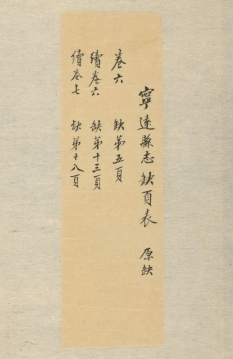 寧遠縣志缺頁表 原缺
卷六 缺第五頁
續卷六 缺第十三頁
續卷七 缺第十八頁